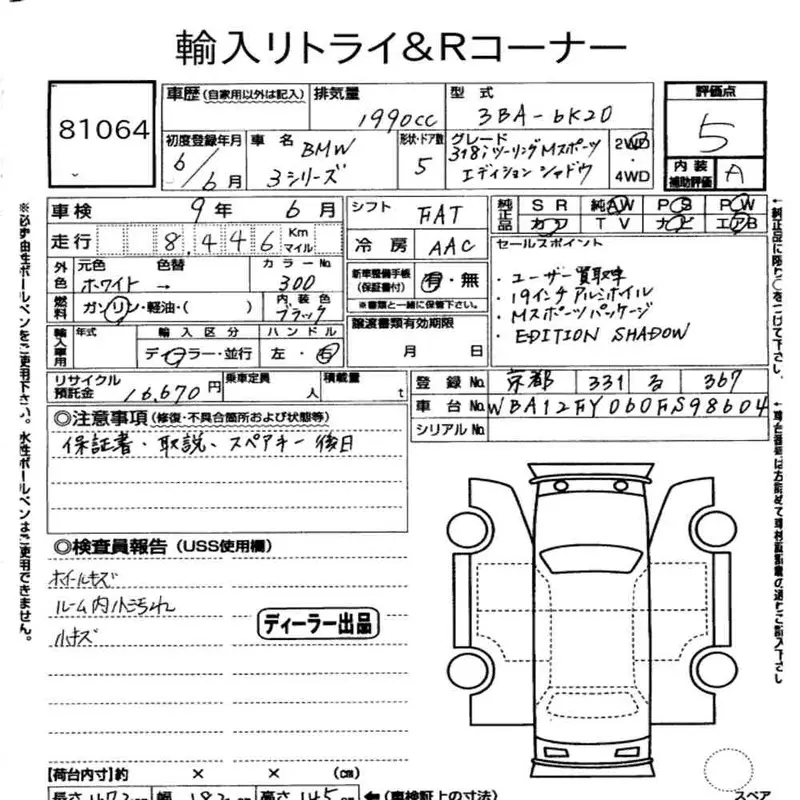 輸入リトライ&Rコーナー
81064
車歴 (自家用以外は記入) 排気量 1990cc 型式 3BA-6K20
評価点 5
初度登録年月 6/6月 車名 BMW 3シリーズ 形状・ドア数 5 グレード 318iツーリングMスポーツ エディションシャドウ 2WD 4WD
内装補助評価 A
車検 9年 6月 シフト FAT 純正品 SR 純AW PS PW
走行 8,446 Km マイル 冷房 AAC カワ TV ナビ エアB
外色 元色 ホワイト → 色替 カラーNo 300
新車整備手帳(保証書付) 有・無
※書類と一緒に保管下さい。
セールスポイント
・ユーザー買取車
・19インチアルミホイル
・Mスポーツパッケージ
・EDITION SHADOW
燃料 ガソリン・軽油・( ) 内装色 ブラック
譲渡書類有効期限 月 日
輸入車用 年式 輸入区分 ディーラー・並行 ハンドル 左・右
リサイクル預託金 16,670円 乗車定員 人 積載量 t
登録No. 京都 331 る 367
車台No. WBA12FY060FS98604
シリアルNo.
◎注意事項(修復・不具合箇所および状態等)
保証書・取説、スペアキー後日
◎検査員報告(USS使用欄)
ホイールキズ
ルーム内小汚れ
小キズ
ディーラー出品
【荷台内寸】約 × × (cm)
長さ 472 cm 幅 182 cm 高さ 145 cm ←(車検証上の寸法)
スペア
※必ず油性ボールペンをご使用下さい。水性ボールペンはご使用できません。
←純正品に限り○をつけて下さい。
←車台番号は右詰めで車検証記載の通りご記入下さい